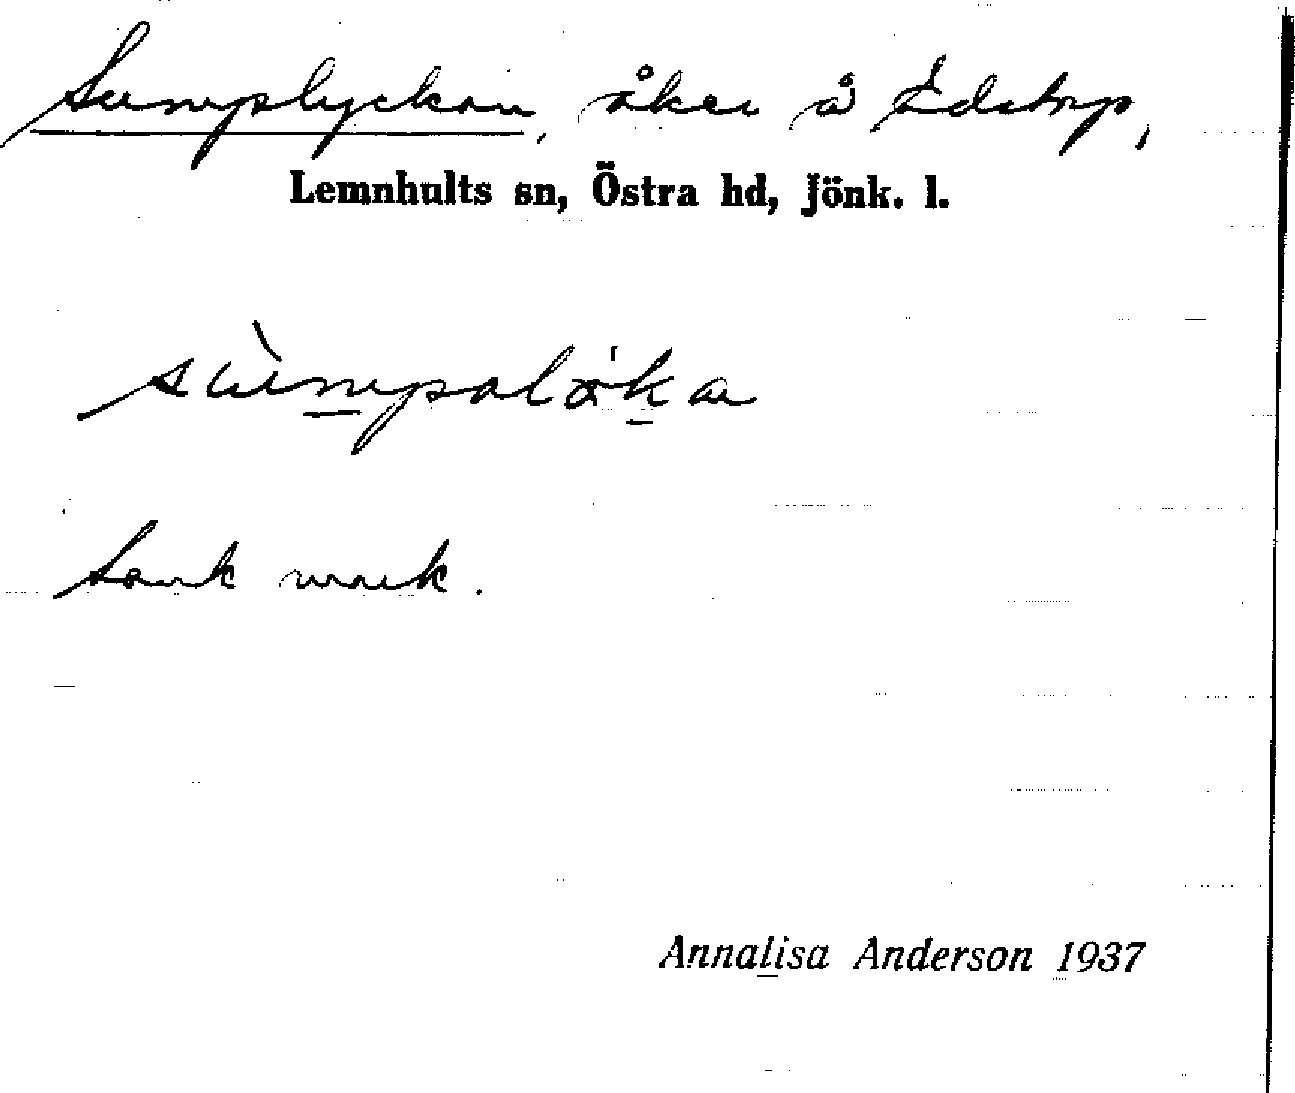 Sumplyckan, åker å Edstorp,
Lemnhults sn, Östra hd, Jönk. l.
sùmpalöka
Sank mark.
Annalisa Anderson 1937